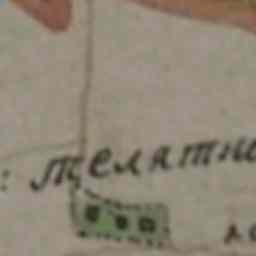 : Телятно